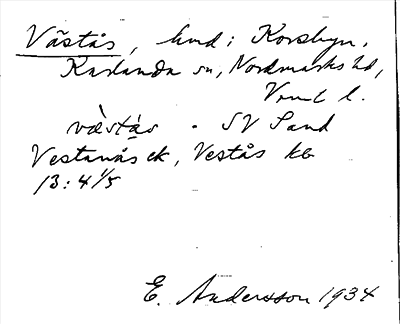 Västås, hmd i Korsbyn,
Karlanda sn, Nordmarks hd,
Vrml l.
væ̀stås . SV Sand
Vestanås ek, Vestås kb
13:4 1/5
E. Andersson 1934